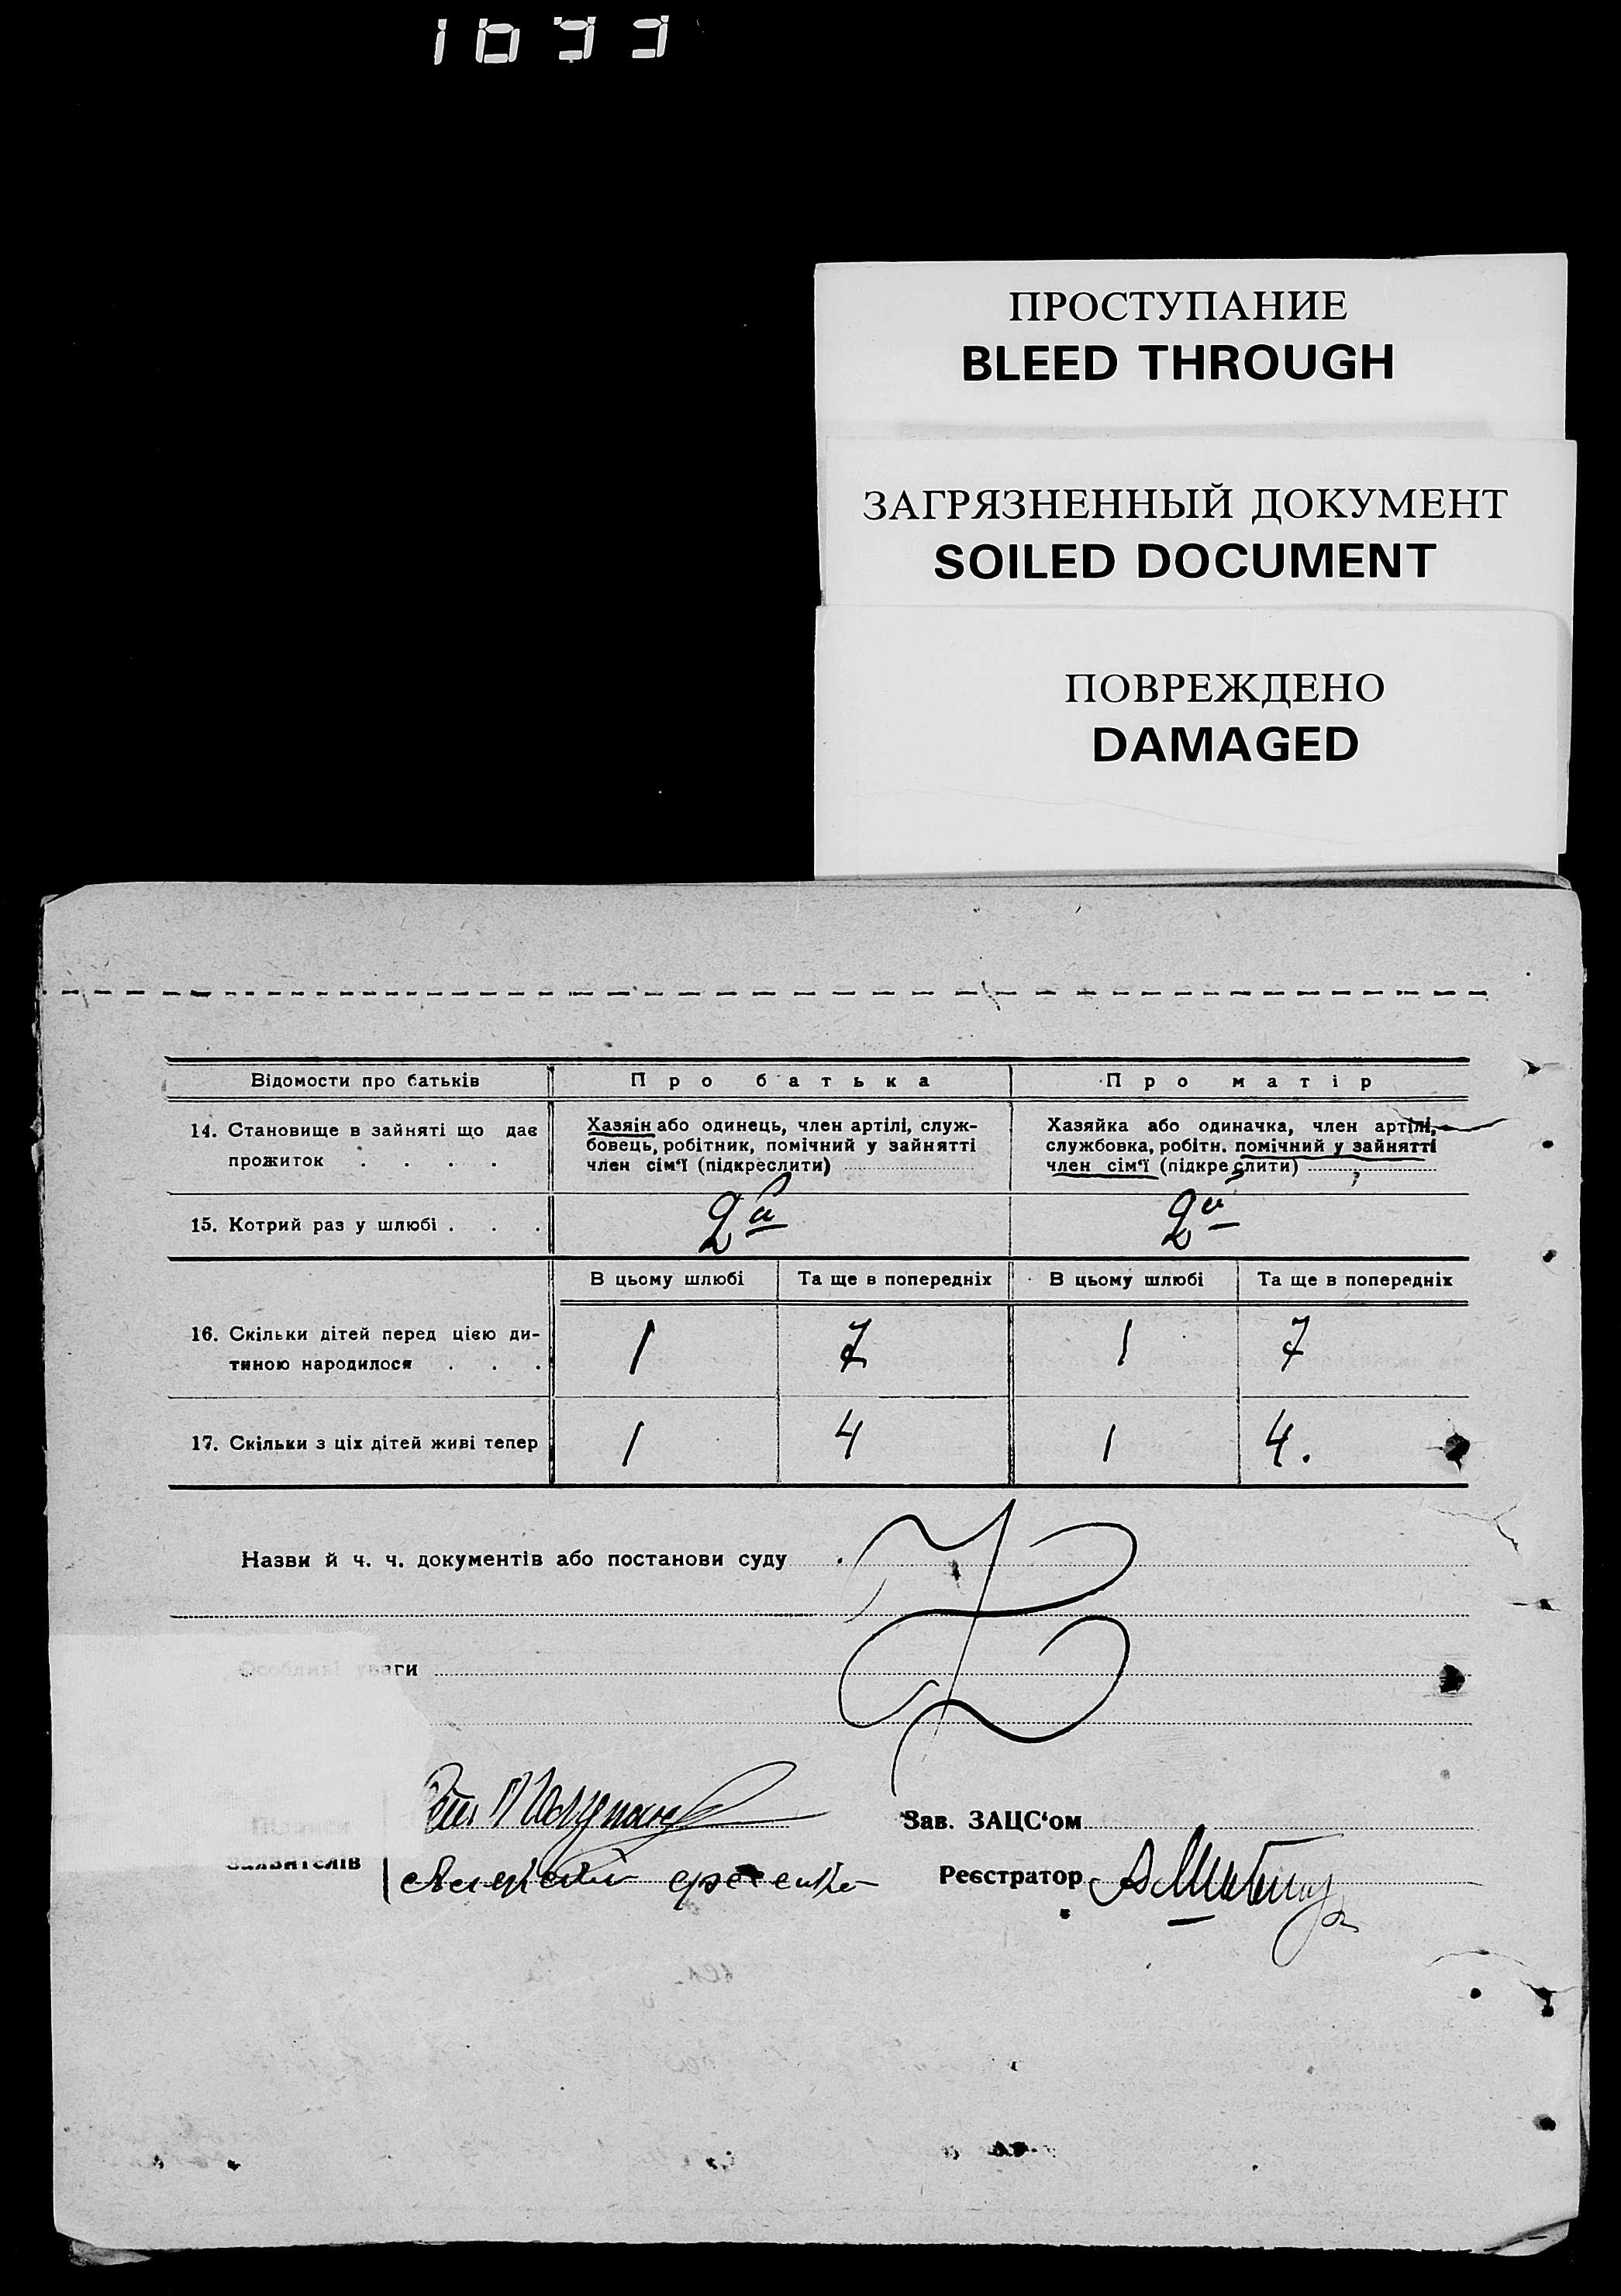 1693
ПРОСТУПАНИЕ
BLEED THROUGH
ЗАГРЯЗНЕННЫЙ ДОКУМЕНТ
SOILED DOCUMENT
ПОВРЕЖДЕНО
DAMAGED
Відомости про батьків
Про батька
Про матір
14. Становище в зайняті що дає
прожиток . . . .
Хазяїн або одинець, член артілі, служ-
бовець, робітник, помічний у зайнятті
член сім'ї (підкреслити)
Хазяйка або одиначка, член артілі,
службовка, робітн. помічний у зайнятті
член сім'ї (підкреслити)
15. Котрий раз у шлюбі . . .
2й
2й
В цьому шлюбі Та ще в попередніх В цьому шлюбі Та ще в попередніх
16. Скільки дітей перед цією ди-
тиною народилося . . .
1 7 1 7
17. Скільки з ціх дітей живі тепер
1 4 1 4.
Назви й ч. ч. документів або постанови суду
Особливі уваги
Підписи
заявителів
Зав. ЗАЦС'ом
Реєстратор